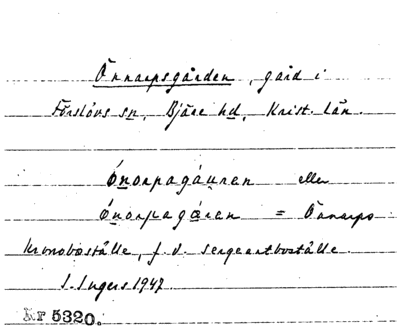 Önnarpsgården, gård i
Förslövs sn, Bjäre hd, Krist. län.
ónorpagáuren eller
ónorpagáren = Önnarps
Kronoboställe, f. d. sergeantboställe.
I. Ingers 1947
Nr 5320.